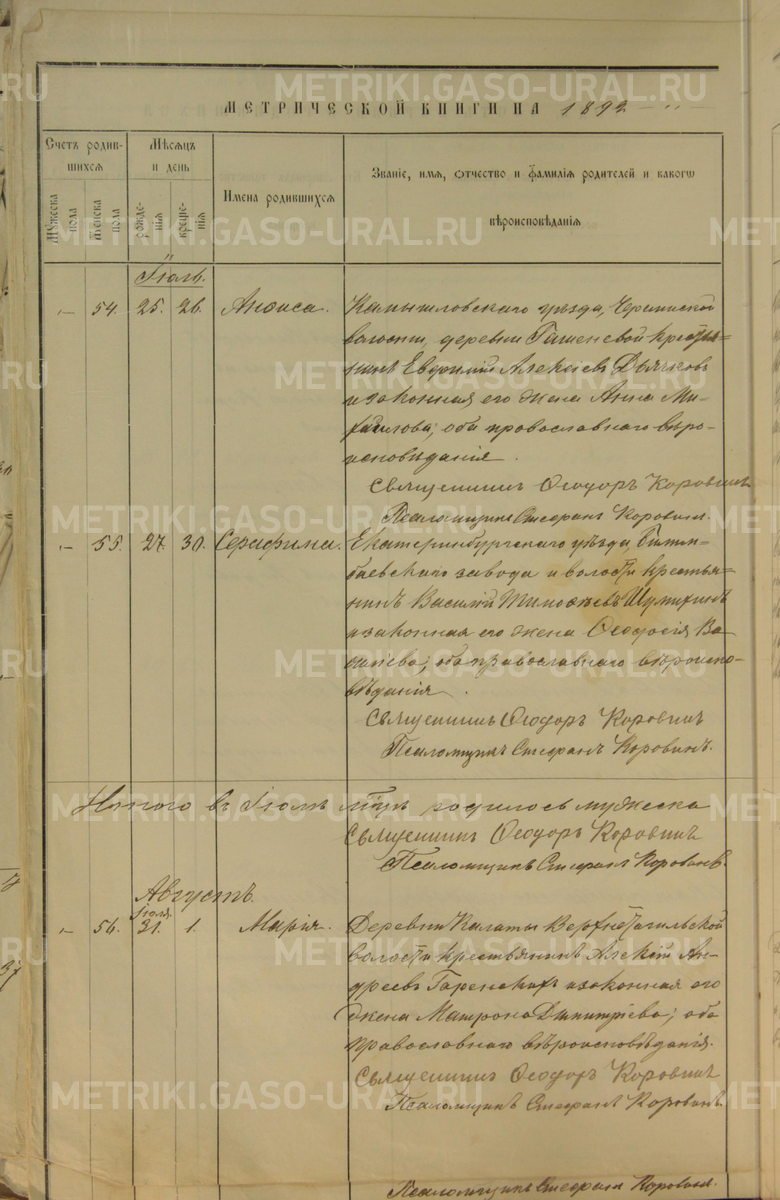 METRIKI.GASO-URAL.RU
МЕТРИЧЕСКОЙ КНИГИ НА 1892
Счетъ родившихся
Мѣсяцъ и день
Имена родившихся
Званіе, имя, отчество и фамилія родителей и какого вѣроисповѣданія
Мужеска пола
Женска пола
рожденія
крещенія
Іюль.
54. 25. 26. Анѳиса.
Камышловскаго уѣзда,
волости, деревни крестья=
нинъ Евфимій Алексѣевъ Дьячковъ
и законная его жена Анна Ми-
хаилова; оба православнаго вѣро-
исповѣданія.
Священникъ Ѳеодоръ Коровинъ
Псаломщикъ Стефанъ Коровинъ.
55. 27. 30. Серафима.
Екатеринбургскаго уѣзда, Билим-
баевскаго завода и волости крестья=
нинъ Василій Тимоѳеевъ Шумихинъ
и законная его жена Ѳеодосія Ва-
оба православнаго вѣроиспо-
вѣданія.
Священникъ Ѳеодоръ Коровинъ
Псаломщикъ Стефанъ Коровинъ.
Итого въ Іюлѣ м̃цѣ родилось мужеска
Священникъ Ѳеодоръ Коровинъ
Псаломщикъ Стефанъ Коровинъ.
Августъ.
Іюля.
56. 31. 1. Марія.
Деревни Калаты Верхнетагильской
волости крестьянинъ Алексій Ан-
дреевъ Гаренскихъ и законная его
жена Матрона Димитріева; оба
православнаго вѣроисповѣданія.
Священникъ Ѳеодоръ Коровинъ
Псаломщикъ Стефанъ Коровинъ.
Псаломщикъ Стефанъ Коровинъ.